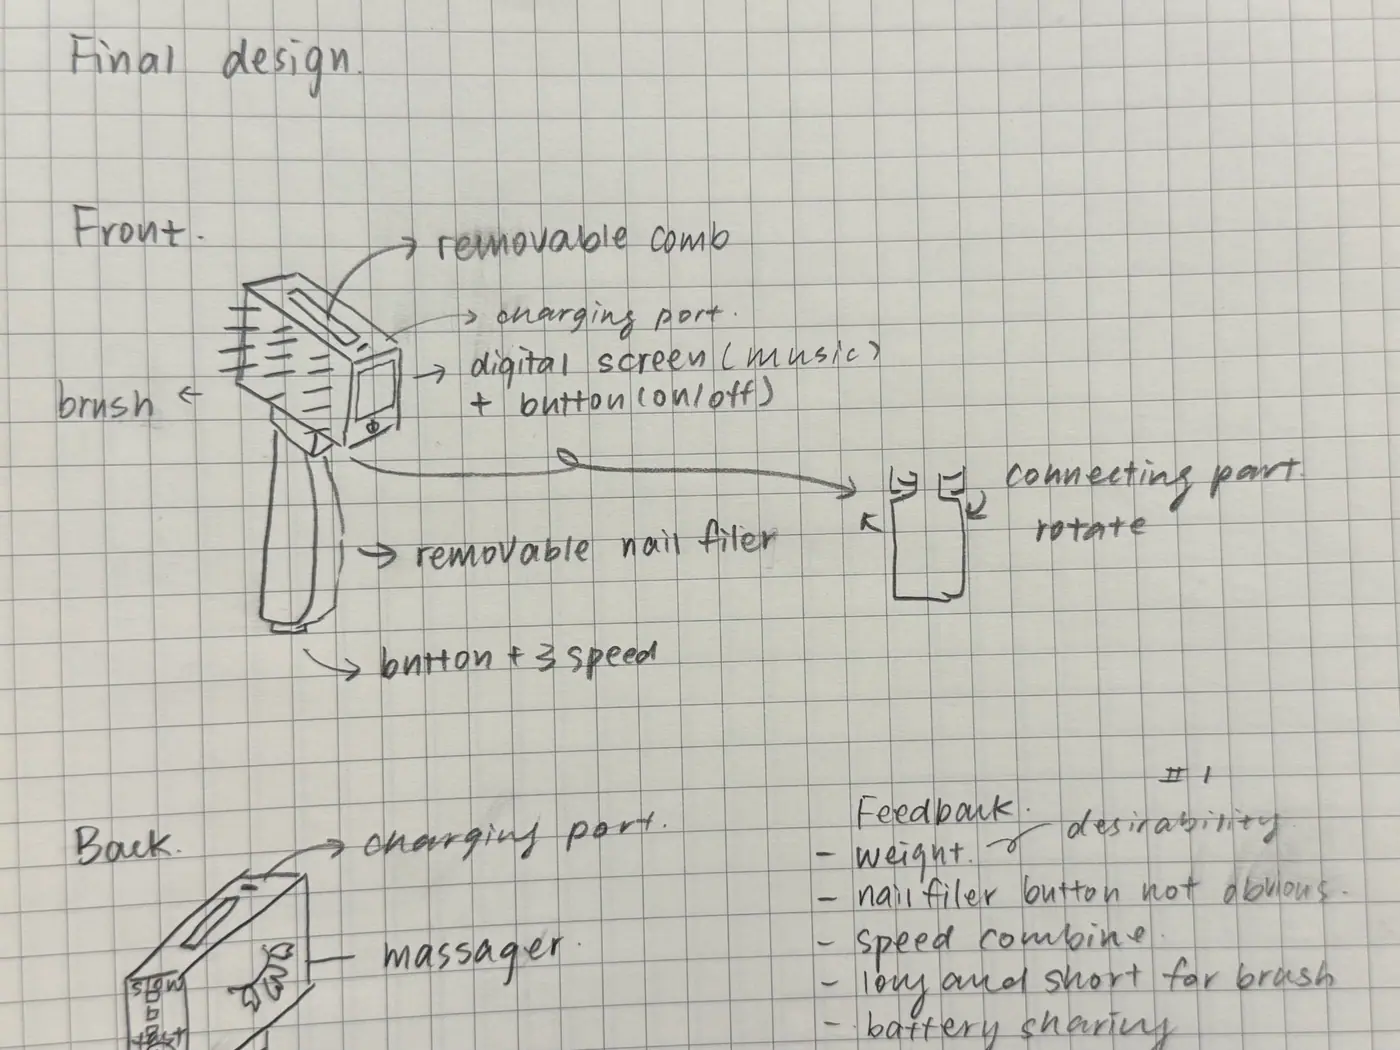 Final design.
Front.
removable comb
charging port.
digital screen (music)
+ button (on/off)
brush
connecting part.
rotate
removable nail filer
button + 3 speed
Back.
charging port.
massager.
slow
#1
Feedback.
desirability
- weight.
- nail filer button not obvious.
- speed combine.
- long and short for brush
- battery sharing